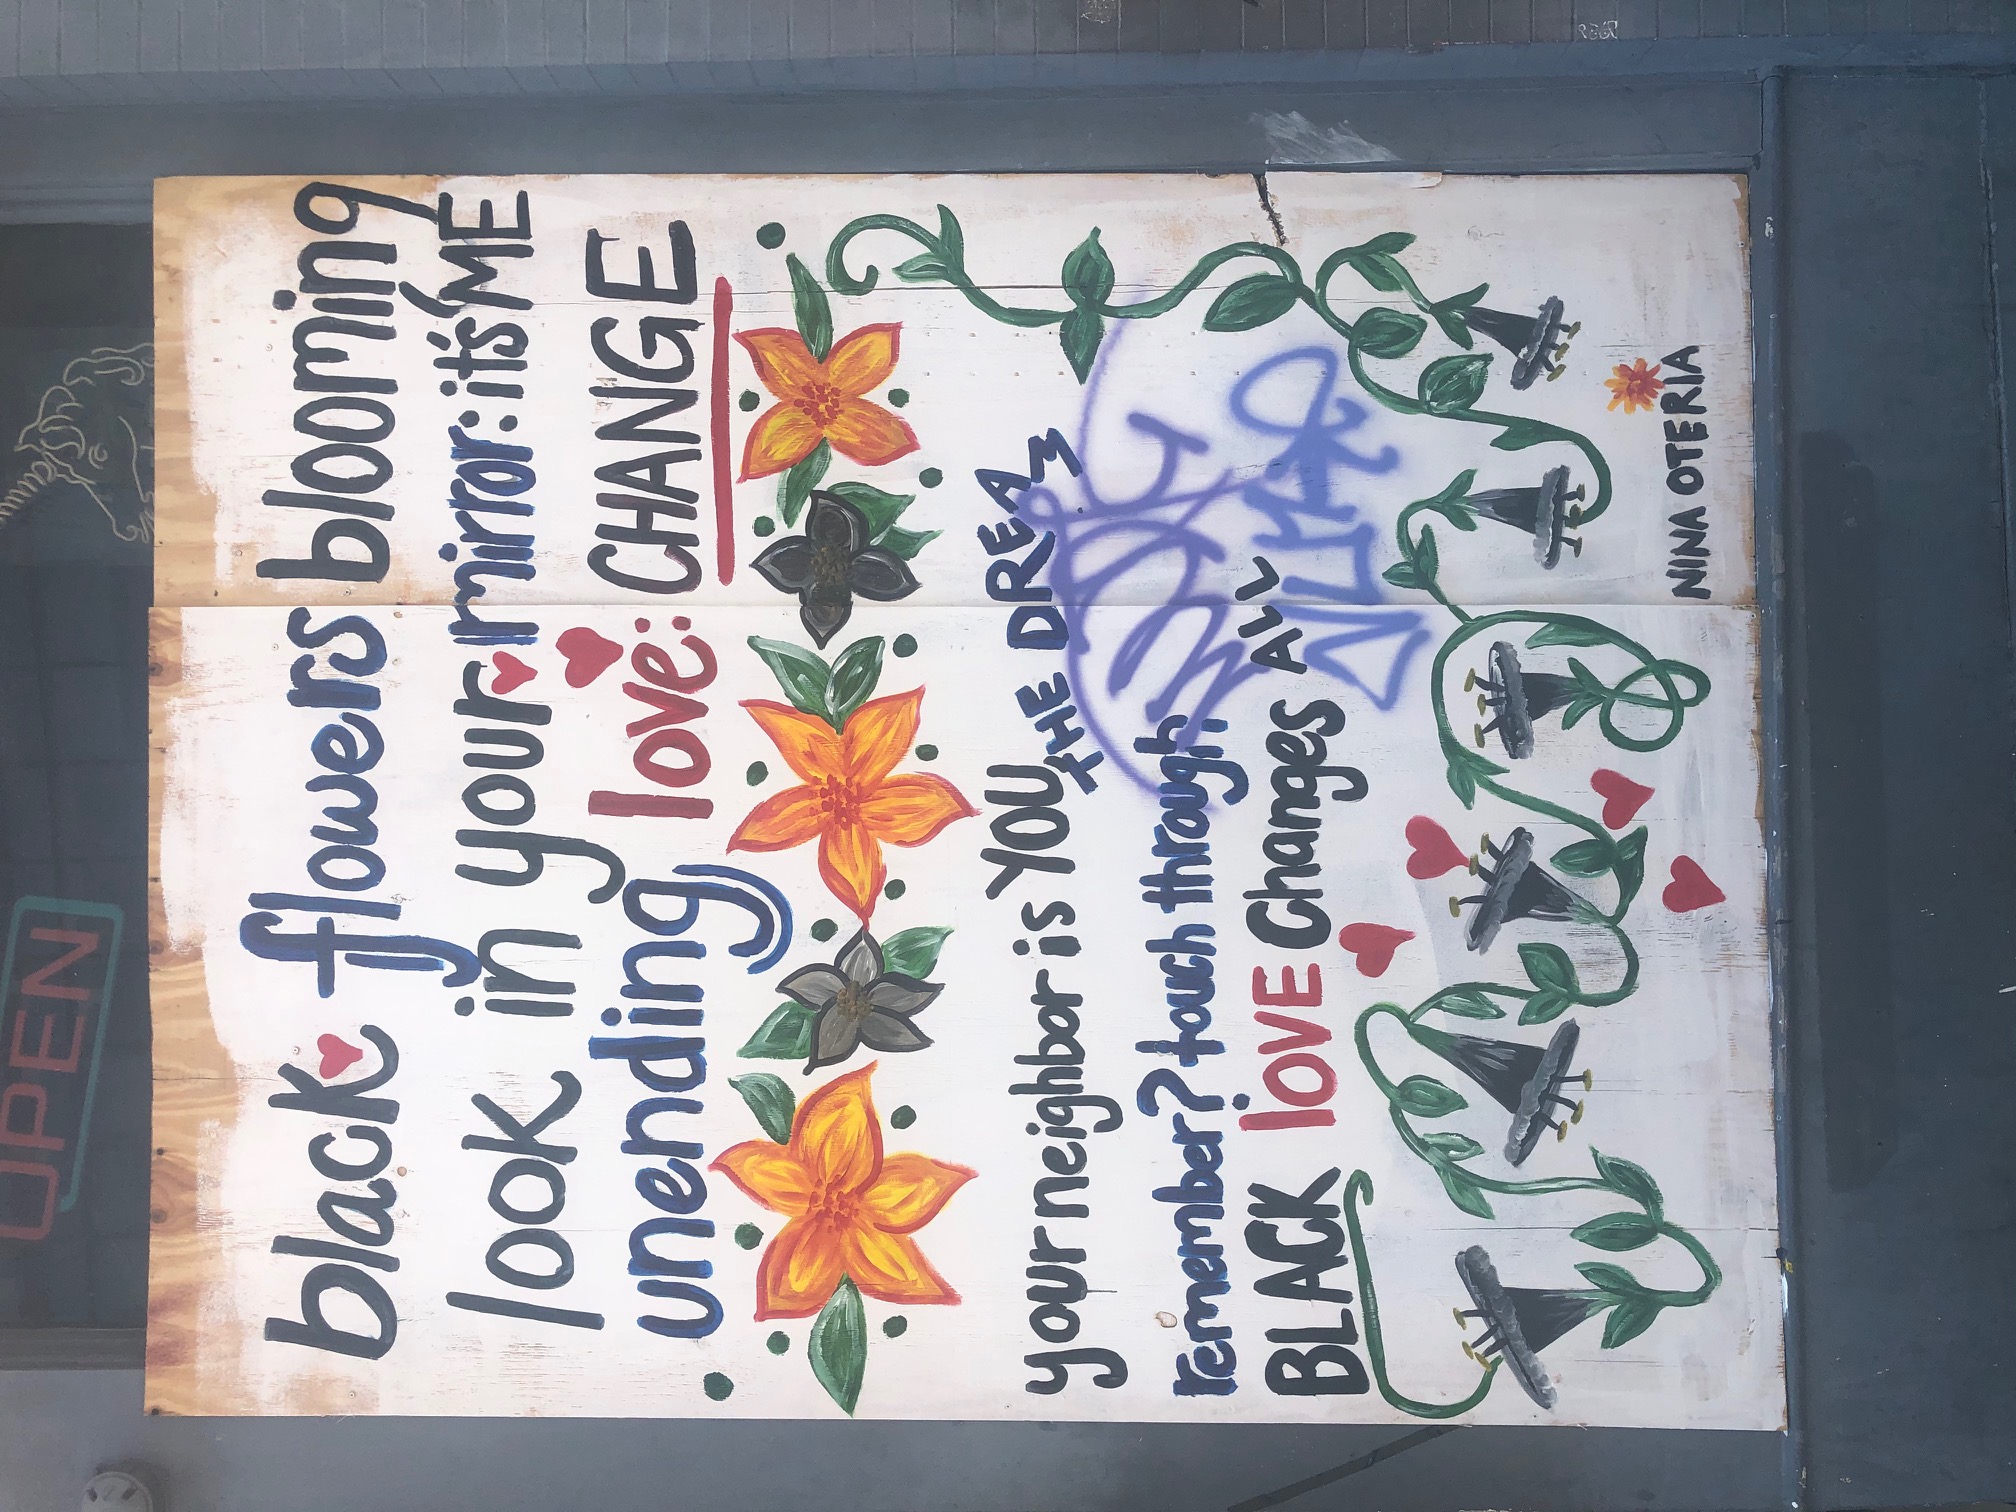 OPEN
black flowers blooming
look in your mirror: it's ME
unending love: CHANGE
your neighbor is YOU THE DREAM
remember? touch through.
BLACK love Changes All
NINA OTERIA